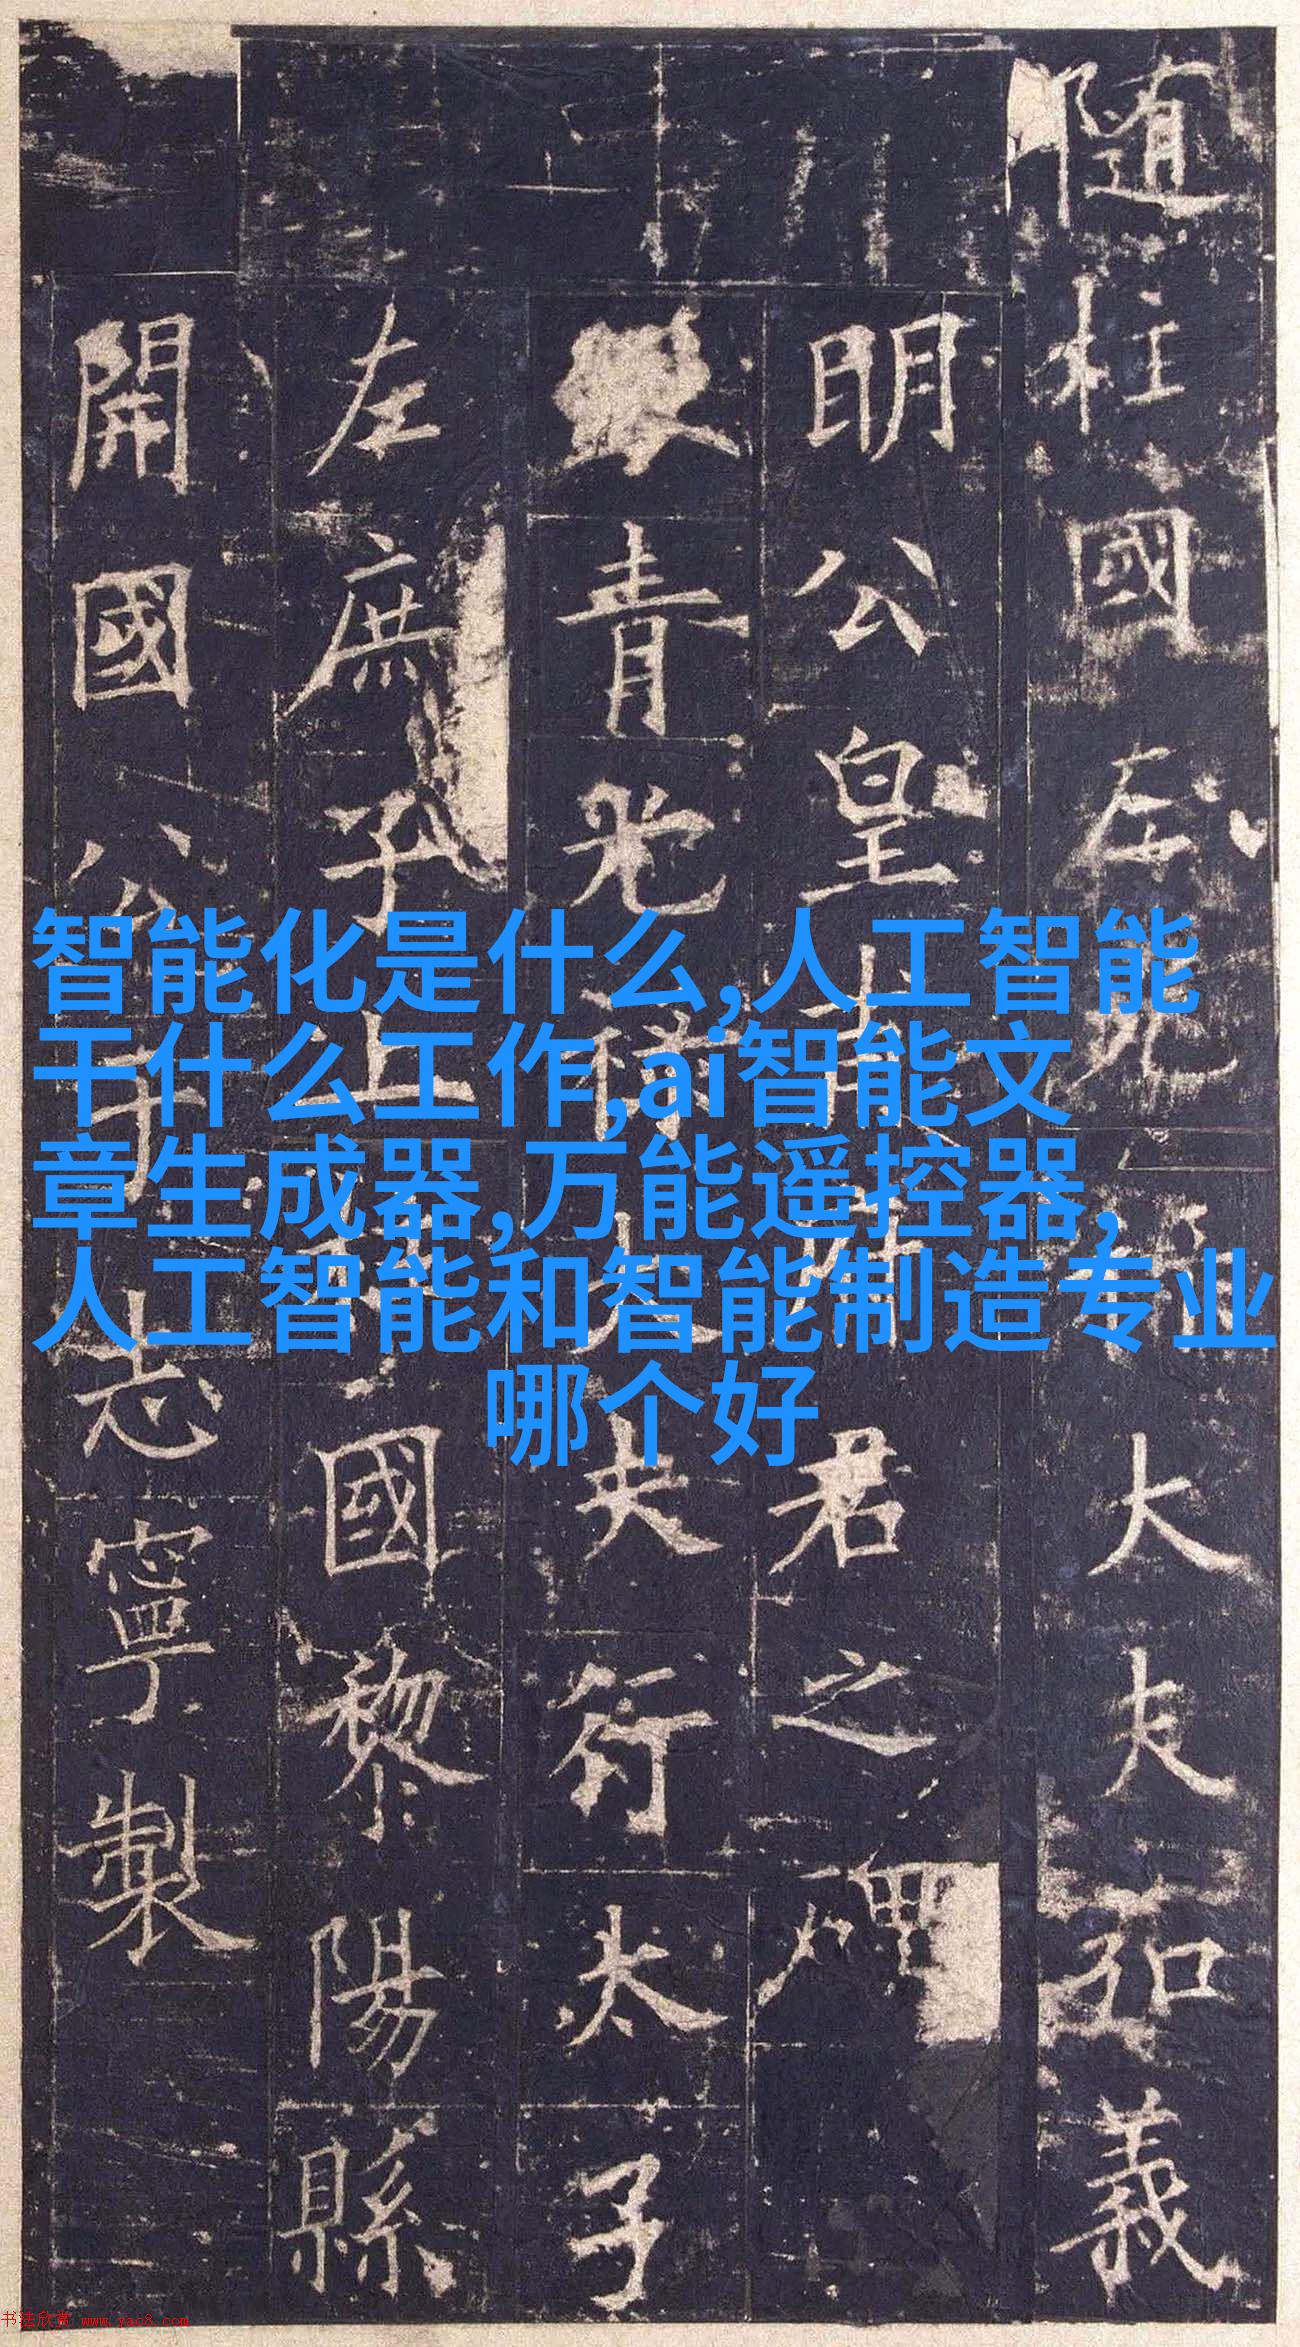 智能化是什么,人工智能
干什么工作,ai智能文
章生成器,万能遥控器,
人工智能和智能制造专业
哪个好
隨柱國左光祿大夫弘義
明公皇甫府君之碑
青光祿大夫行太子
左庶子上柱國黎陽縣
開國公于志寧製
书法欣赏 www.yac8.com